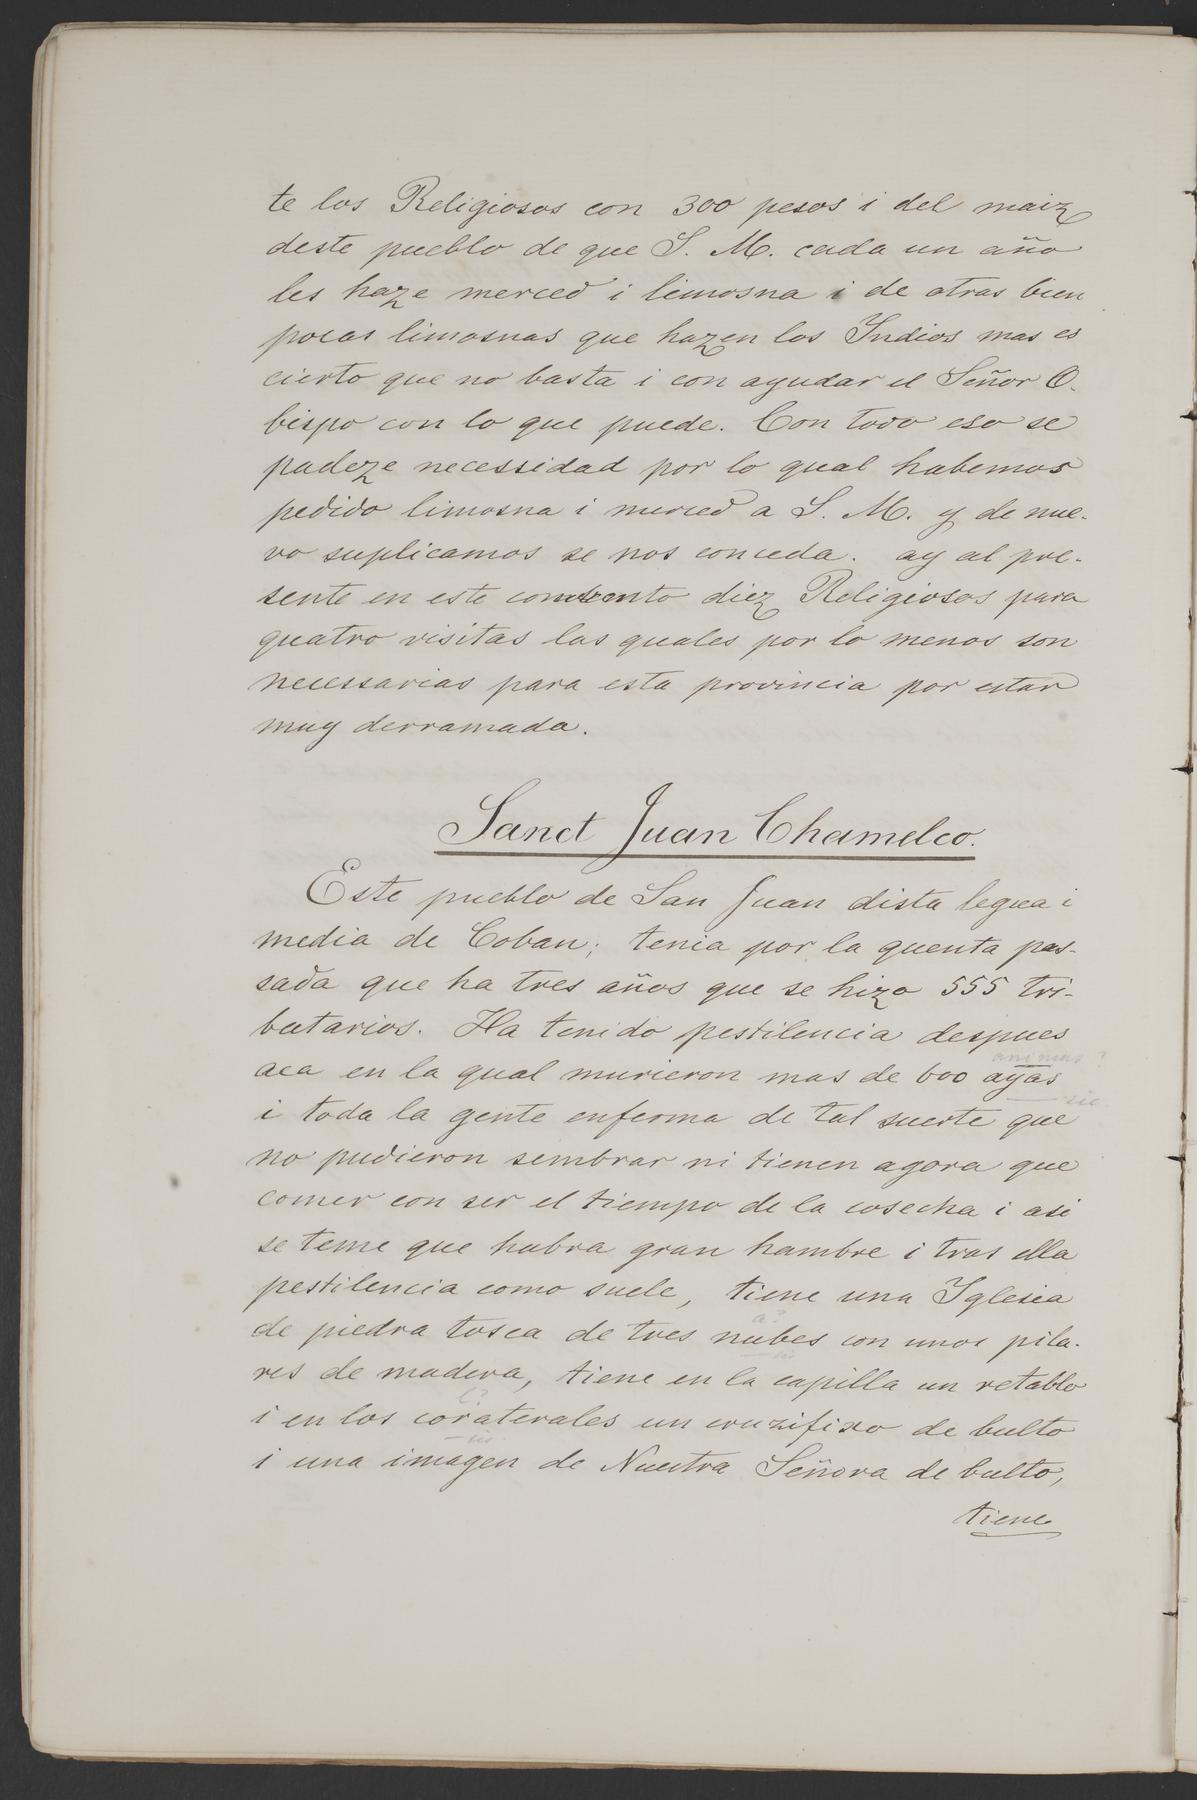 te los Religiosos con 300 pesos i del maiz
deste pueblo de que S. M. cada un año
les haze merced i limosna i de otras bien
pocas limosnas que hazen los Indios mas es
cierto que no basta i con ayudar el Señor O-
bispo con lo que puede. Con todo eso se
padeze necessidad por lo qual habemos
pedido limosna i merced a S. M. y de nue-
vo suplicamos se nos conceda. ay al pre-
sente en este convento diez Religiosos para
quatro visitas las quales por lo menos son
necessarias para esta provincia por estar
muy derramada.
Sanct Juan Chamelco.
Este pueblo de San Juan dista legua i
media de Coban; tenia por la quenta pas-
sada que ha tres años que se hizo 555 tri-
butarios. Ha tenido pestilencia despues
animas?
aca en la qual murieron mas de 600 ayas
sic
i toda la gente enferma de tal suerte que
no pudieron sembrar ni tienen agora que
comer con ser el tiempo de la cosecha i asi
se teme que habra gran hambre i tras ella
pestilencia como suele, tiene una Iglesia
a?
de piedra tosca de tres nubes con unos pila-
sic
res de madera, tiene en la capilla un retablo
l?
i en los coraterales un cruzifixo de bulto
sic
i una imagen de Nuestra Señora de bulto,
tiene